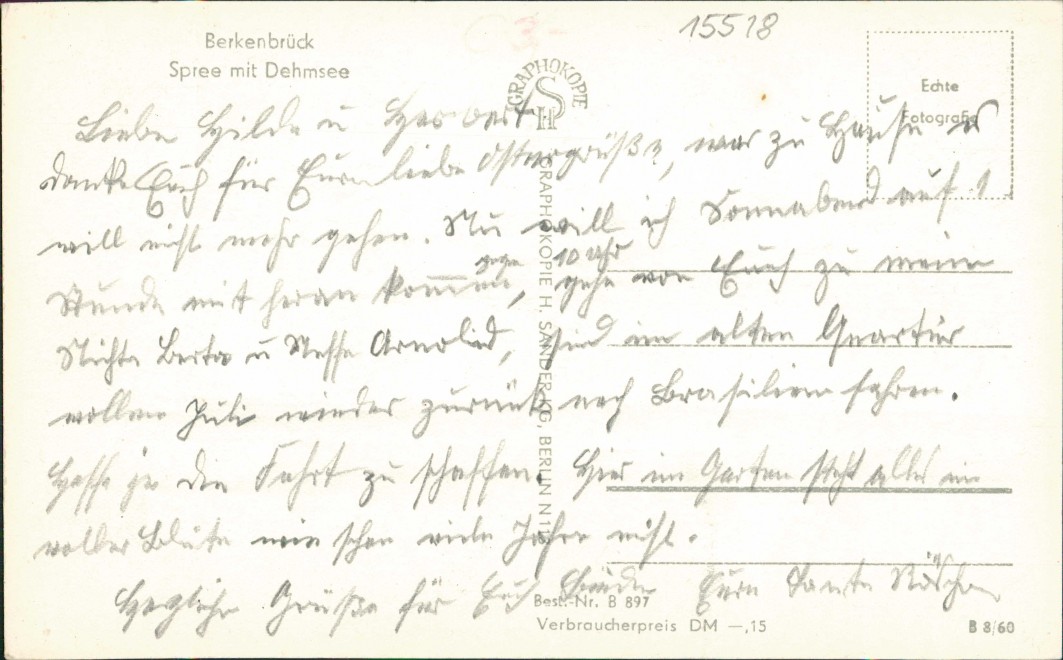 15518
Berkenbrück
Spree mit Dehmsee
GRAPHOKOPIE
H S
Echte
Fotografie
Liebe Hilde u Herbert
danke Euch für Eure liebe Ostergrüße, war zu Hause es
will nicht mehr gehen. Nu will ich Sonnabend auf 1
Stunde mit heran kommen, gegen 10 Uhr gehe von Euch zu meine
Nichte Berta u Neffe Arnold, sind im alten Quartier
wollen Juli wieder zurück nach Brasilien fahren.
Hoffe ja die Fahrt zu schaffen. Hier im Garten steht alles in
voller Blüte wie schon viele Jahre nicht.
Herzliche Grüße für Euch Beide Eure Tante Röschen
GRAPHOKOPIE H. SANDER KG, BERLIN N11
Best.-Nr. B 897
Verbraucherpreis DM —,15
B 8/60